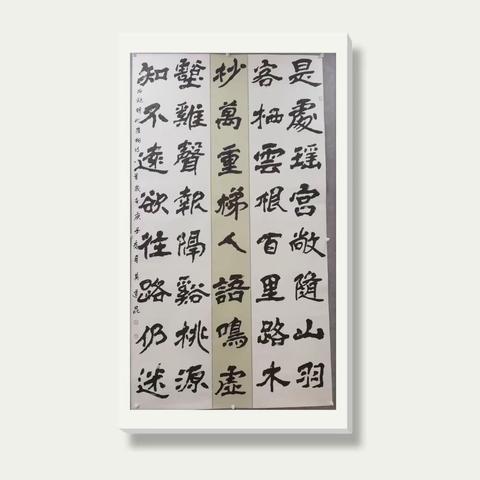 是處瑶宫敞隨山羽
客栖雲根百里路木
杪萬重梯人語鳴虛
壑雞聲報隔谿桃源
知不遠欲往路仍迷
庚子